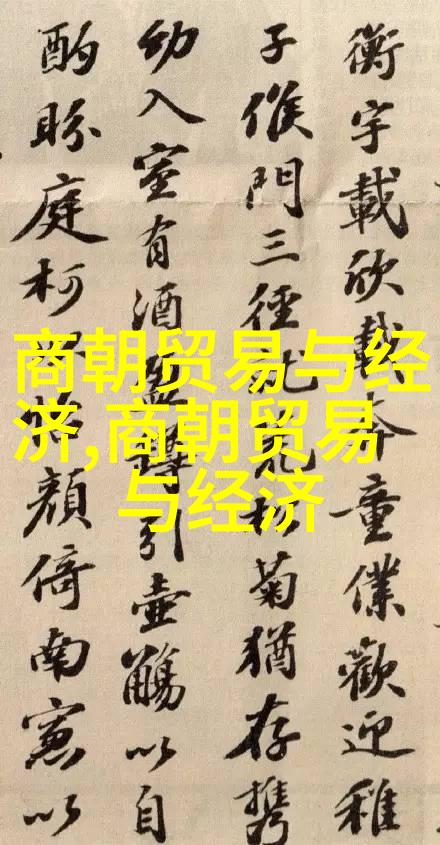 商朝贸易与经
济,商朝贸易
与经济
衡宇載欣載奔童僕歡迎稚
子候門三徑就荒松菊猶存携
幼入室有酒盈樽引壺觴以自
酌眄庭柯顔倚南窓以